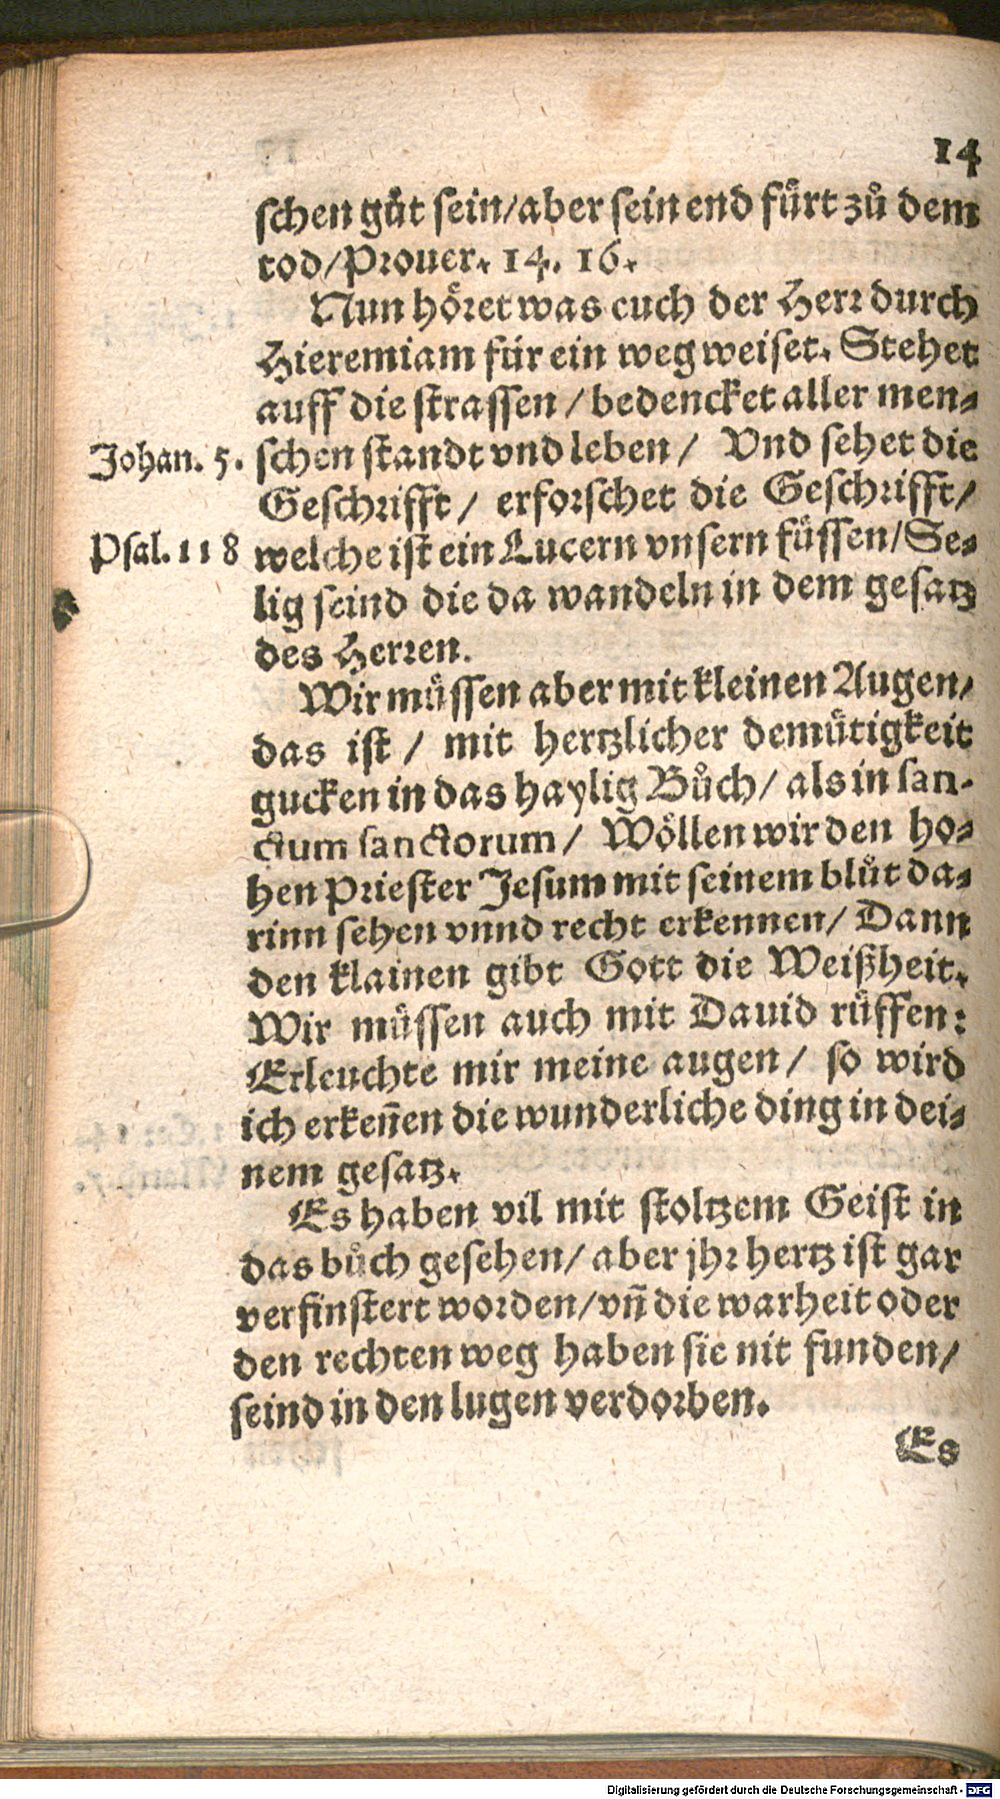 14
schen gůt sein/aber sein end fürt zů dem
tod/Prouer. 14. 16.
Nun höret was euch der Herr durch
Hieremiam für ein weg weiset. Stehet
auff die strassen /bedencket aller men-
Johan. 5. schen standt vnd leben/ Vnd sehet die
Geschrifft/ erforschet die Geschrifft/
Psal. 118 welche ist ein Lucern vnsern füssen/Se-
lig seind die da wandeln in dem gesatz
des Herren.
Wir müssen aber mit kleinen Augen/
das ist / mit hertzlicher demütigkeit
gucken in das haylig Bůch/ als in san-
ctum sanctorum/ Wöllen wir den ho-
hen Priester Jesum mit seinem blůt da-
rinn sehen vnnd recht erkennen/ Dann
den klainen gibt Gott die Weißheit.
Wir müssen auch mit Dauid rüffen:
Erleuchte mir meine augen/ so wird
ich erkeñen die wunderliche ding in dei-
nem gesatz.
Es haben vil mit stoltzem Geist in
das bůch gesehen/ aber jhr hertz ist gar
verfinstert worden/vñ die warheit oder
den rechten weg haben sie nit funden/
seind in den lugen verdorben.
Es
Digitalisierung gefördert durch die Deutsche Forschungsgemeinschaft - DFG